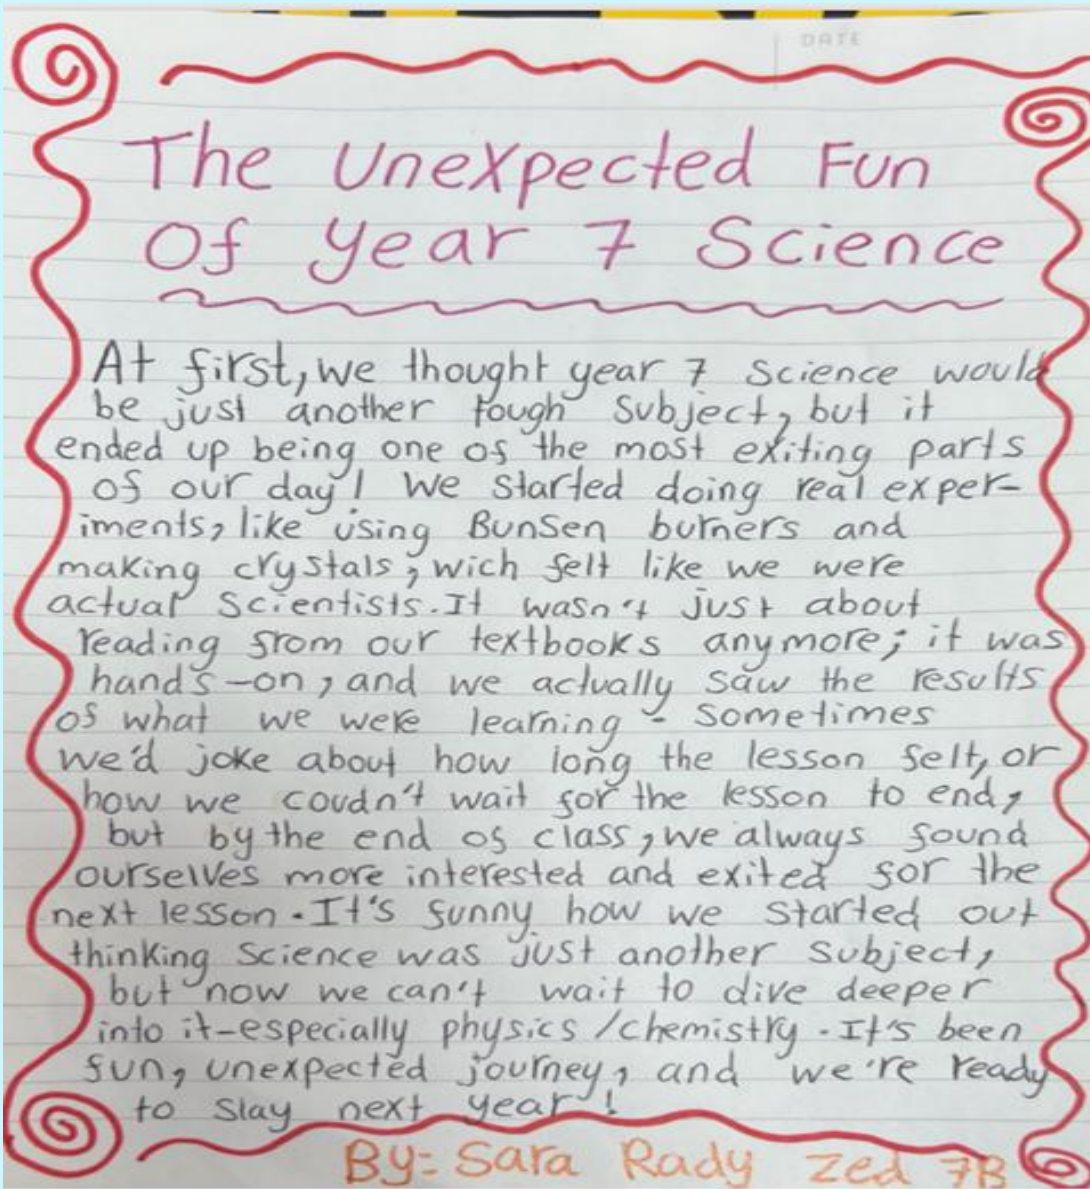 DATE
The Unexpected Fun
Of Year 7 Science
At first, we thought year 7 Science would
be just another tough Subject, but it
ended up being one of the most exiting parts
of our day! We started doing real exper-
iments, like using Bunsen burners and
making crystals, wich felt like we were
actual Scientists. It wasn't just about
reading from our textbooks anymore; it was
hands-on, and we actually saw the results
of what we were learning - Sometimes
we'd joke about how long the lesson felt, or
how we coudn't wait for the lesson to end,
but by the end of class, we always found
ourselves more interested and exited for the
next lesson. It's funny how we started out
thinking Science was just another Subject,
but now we can't wait to dive deeper
into it-especially physics/chemistry. It's been
fun, unexpected journey, and we're ready
to slay next year!
By: Sara Rady Zed 7B